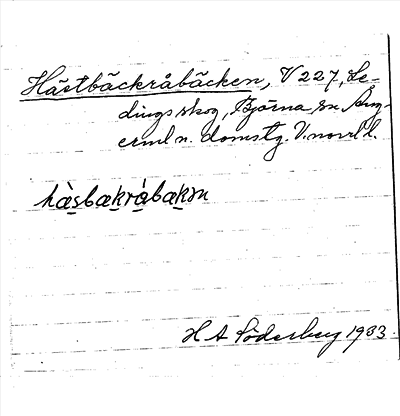 Hästbäckråbäcken, V 227, Le-
dingsskog, Björna sn. Ång-
erml n. domstg. V.norrl l.
hàsbækrábækən
H A Söderberg 1933